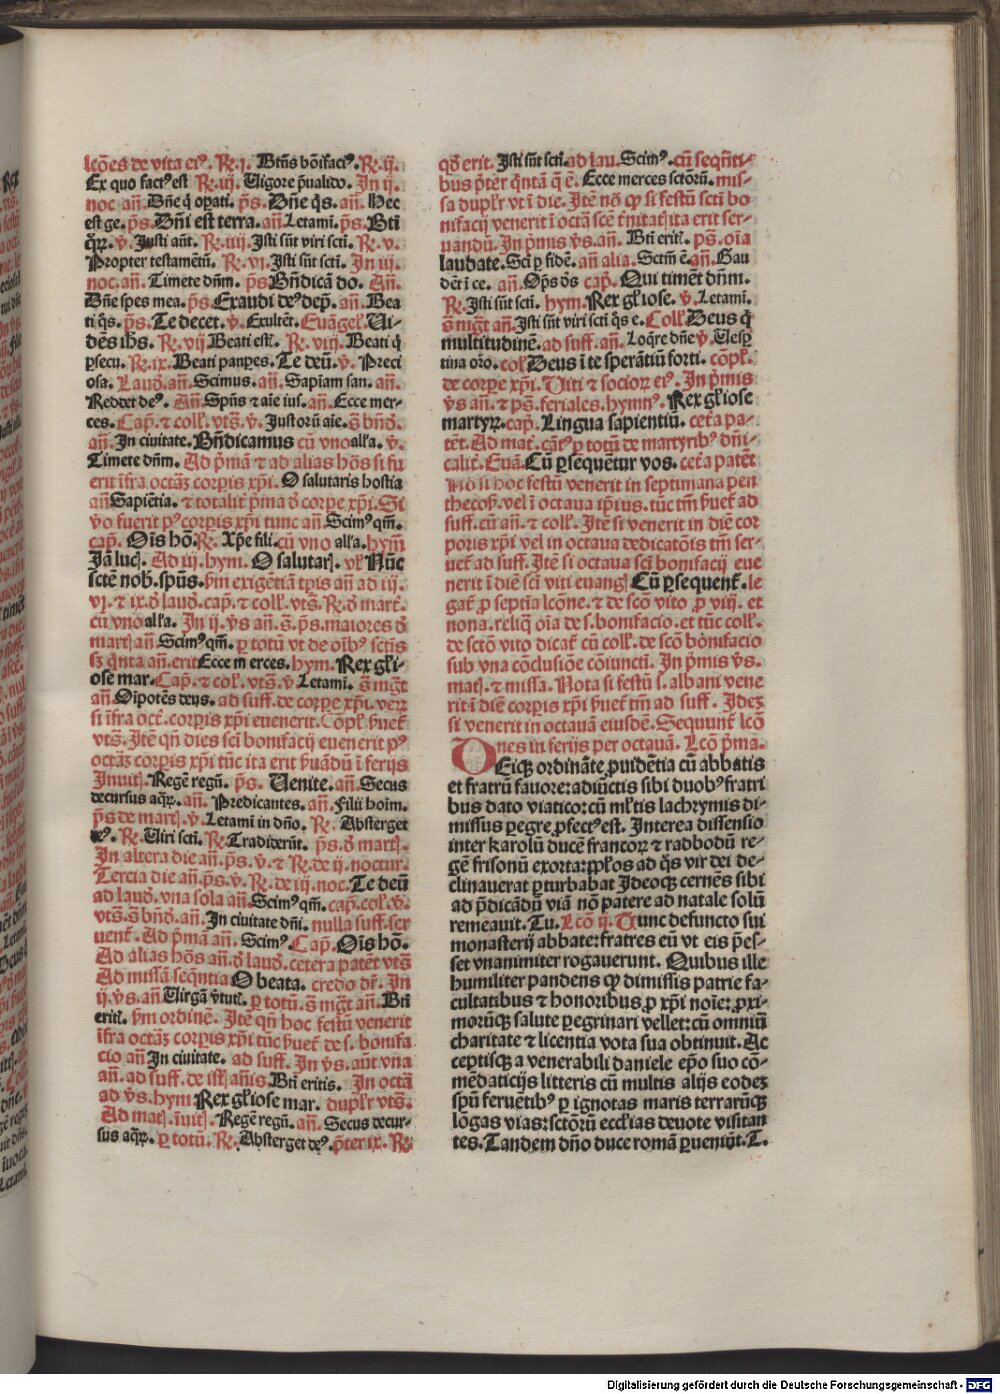 lcões de vita eiꝰ. ℟. i. Btñs bõifaciꝰ. ℟. ij.
Ex quo factꝰ est ℟. iij. Uigore p̃ualido. In ij.
noc. añ. Dñe q̇ opati. p̃s. Dñe q̇s. añ. Hec
est ge. p̃s. Dñi est terra. añ. Letami. p̃s. Btĩ
q̇ꝝ. v̇. Justi aũt. ℟. iiij. Isti sũt viri scti. ℟. v.
Propter testamẽtũ. ℟. vi. Isti sũt scti. In iij.
noc. añ. Timete dñm. p̃s Bñdicã do. Añ.
Dñe spes mea. p̃s. Exaudi deꝰ dep̃. añ. Bea
ti q̇s. p̃s. Te decet. v̇. Exultẽt. Euãgel̃. Ui-
dẽs ihs. ℟. vij Beati estl̃. ℟. viij. Beati q̇
ꝑsecu. ℟. ix. Beati pauꝑes. Te deũ. v̇. Preci
osa. Laud̃. añ. Scimus. añ. Sapiam san. añ.
Reddet deꝰ. Añ. Spũs ⁊ aĩe ius. añ. Ecce mer-
ces. Cap̃. ⁊ coll̃. vts̃. v̇. Justorũ aĩe. s̃ bñd̃.
añ. In ciuitate. Bñdicamus cũ vno alĺa. v̇.
Timete dñm. Ad p̃mã ⁊ ad alias hõs si fu
erit ĩfra octãꝫ corpis xp̃i. O salutaris hostia
añ Sapiẽtia. ⁊ totalit̃ p̃ma d̃ corpe xp̃i. Si
v̇o fuerit pꝰ corpis xp̃i tunc añ Scimꝰ qm̃.
cap̃. Oĩs hõ. ℟. Xp̃e fili. cũ vno alĺa. hym̃
Jã lucꝭ. Ad iij. hym. O salutarꝭ. vl̃ Nũc
sctẽ nob̃. spũs. ẜm exigẽtiã tp̃is añ ad iij.
vj. ⁊ ix. d̃ laud̃. cap̃. ⁊ coll̃. vts̃. ℟. d̃ mart̃.
cũ vno alĺa. In ij. v̇s añ. s̃. p̃s. maiores d̃
martꝭ añ Scimꝰ qm̃. ꝑ totũ vt de oĩbꝰ sctĩs
sꝫ q̇nta añ. erit Ecce m erces. hym. Rex gl̃i-
ose mar. Cap̃. ⁊ col̃. vts̃. v̇ Letami. s̃ mg̃t
añ Oĩpotẽs deus. ad suff. de corpe xp̃i. verꝝ
si ĩfra oct̃. corpis xp̃i euenerit. Cõpl̃ ẜuet̃
vts̃. Itẽ qñ dies sci bonifacij euenerit pꝰ
octãꝫ corpis xp̃i tũc ita erit ẜuãdũ ĩ ferijs
Inuitꝭ. Regẽ regũ. p̃s. Uenite. añ. Secus
decursus aq̇ꝝ. añ. Predicantes. añ. Filii hoĩm.
p̃s de martꝭ. v̇. Letami in dño. ℟. Absterget
℟. Uiri scti. ℟ Tradiderũt. p̃s. d̃ martꝭ.
In altera die añ. p̃s. v̇. ⁊ ℟. de ij. noctur.
Tercia die añ. p̃s. v̇. ℟. de iij. noc. Te deũ
ad laud̃. vna sola añ. Scimꝰ qm̃. cap̃. col̃. v̇.
vts̃. s̃ bñd̃. añ. In ciuitate dñi. nulla suff. ser
uent̃. Ad p̃mã añ. Scimꝰ. Cap̃. Oĩs hõ.
Ad alias hõs añ. d̃ laud̃. cetera patẽt vts̃
Ad missã seq̃ntia O beata. credo dr̃. In
ij. v̇s. añ Uirgã v̇tutꝭ. ꝑ totũ. s̃ mg̃t añ. Btĩ
eritꝭ. ẜm ordinẽ. Itẽ qñ hoc festũ venerit
ĩfra octãꝫ corpis xp̃i tũc ẜuet̃ de s. bonifa
cio añ In ciuitate. ad suff. In v̇s. aũt vna
añ. ad suff. de istꝭ añis. Btĩ eritis. In octã
ad v̇s. hym Rex gl̃iose mar. duplr̃ vts̃.
Ad matꝭ. ĩuitꝭ. Regẽ regũ. añ. Secus decur-
sus aq̇ꝝ. ꝑ totũ. ℟. Absterget deꝰ. p̃ter ix. ℟
qd̃ erit. Isti sũt scti. ad lau. Scimꝰ. cũ seq̃nti-
bus p̃ter q̇ntã q̃ ẽ. Ecce merces sctõrũ. mis-
sa duplr̃ vt ĩ die. Itẽ nõ ꝙ si festũ scti bo
nifacij venerit ĩ octã scẽ t̃nitatꝭ ita erit ser-
uandũ. In p̃mis v̇s. añ. Btĩ eritꝭ. p̃s. oĩa
laudate. Sci ꝑ fidẽ. añ alia. Sctm̃ ẽ. añ. Gau
dẽt ĩ ce. añ. Op̃s d̃s cap̃. Qui timẽt dñm.
℟. Isti sũt scti. hym. Rex gl̃iose. v̇. Letami.
s̃ mg̃t añ. Isti sũt viri scti q̇s e. Coll̃. Deus q̇
multitudinẽ. ad suff. añ. Loq̃re dñe v̇. Uesꝑ
tina orõ. col̃ Deus ĩ te sperãtiũ forti. cõpl̃.
de corpe xp̃i. Uiti ⁊ socioꝝ eiꝰ. In p̃mis
v̇s añ. ⁊ p̃s. feriales. hymnꝰ. Rex gl̃iose
martyꝝ. cap̃. Lingua sapientiũ. cet̃a pa-
tẽt. Ad mat̃. cãt̃ ꝑ totũ de martyribꝰ dñi-
calit̃. Euã. Cũ ꝑsequẽtur vos. cet̃a patẽt
Nõ si hoc festũ venerit in septimana pen
thecoѣ. vel ĩ octaua ipiꝰus. tũc tm̃ ẜuet̃ ad
suff. cũ añ. ⁊ coll̃. Itẽ si venerit in diẽ cor
poris xp̃i vel in octaua dedicatõis tm̃ ser-
uet̃ ad suff. Itẽ si octaua sci bonifacij eue
nerit ĩ diẽ sci viti euangꝭ Cũ ꝑsequent̃. le
gat̃ ꝓ septia lcõne. ⁊ de scõ vito ꝓ viij. et
nona. reliq̃ oĩa de s. bonifacio. et tũc coll̃.
de sctõ vito dicat̃ cũ coll̃. de scõ bonifacio
sub vna cõclusiõe cõiuncti. In p̃mis v̇s.
matꝭ. ⁊ missa. Nota si festũ s. albani vene
rit ĩ diẽ corpis xp̃i ẜuet̃ tm̃ ad suff. Ideꝫ
si venerit in octauã eiusdẽ. Sequunt̃ lcõ
nes in ferijs per octauã. Lcõ p̃ma.
DEiqꝫ ordinãte ꝓuidẽtia cũ abbatis
et fratrũ fauore: adiũctis sibi duobꝰ fratri
bus dato viaticor cũ ml̃tis lachrymis di-
missus ꝑegre ꝓfectꝰ est. Interea dissensio
inter karolũ ducẽ francoꝝ ⁊ radbodũ re-
gẽ frisonũ exorta: ꝓplõs ad q̇s vir dei de-
clinauerat ꝑturbabat Ideoqꝫ cernẽs sibi
ad p̃dicãdũ viã nõ patere ad natale solũ
remeauit. Tu. Lcõ ij. Tunc defuncto sui
monasterij abbate: fratres eũ vt eis p̃es-
set vnanimiter rogauerunt. Quibus ille
humiliter pandens ꝙ dimissis patrie fa-
cultatibus ⁊ honoribus ꝓ xp̃i noĩe: ꝓxi-
morũqꝫ salute ꝑegrinari vellet: cũ omniũ
charitate ⁊ licentia vota sua obtinuit. Ac
ceptisqꝫ a venerabili daniele ep̃o suo cõ-
mẽdaticijs litteris cũ multis alijs eodeꝫ
spũ feruẽtibꝰ ꝑ ignotas maris terrarũqꝫ
lõgas vias: sctõrũ eccl̃ias deuote visitan
tes. Tandem dño duce romã ꝑueniũt. T.
Digitalisierung gefördert durch die Deutsche Forschungsgemeinschaft - DFG